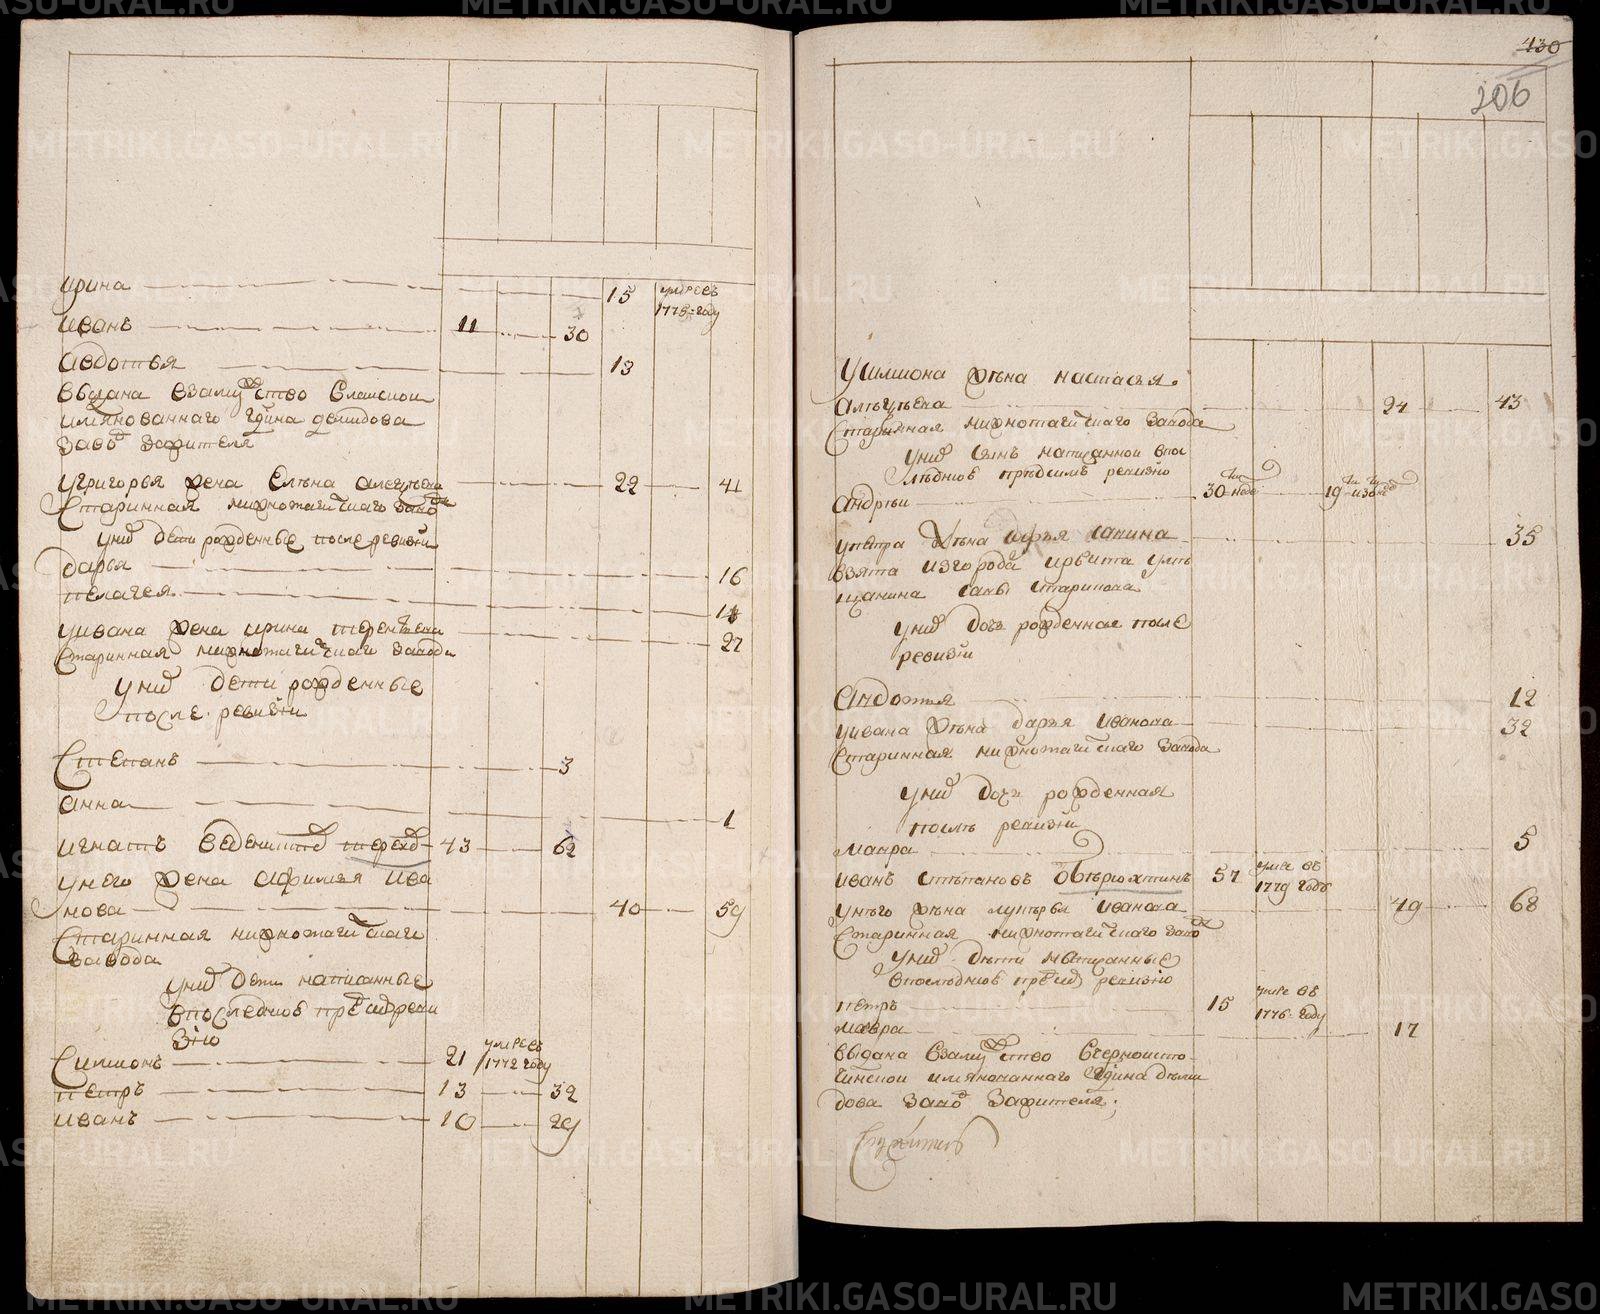 ирина 15 умре въ
1775 году
иванъ 11 30
авдотья 13
выдана взамужство
имянованнаго гдина демидова
заводъ жителя
у григорья жена елена 22 41
старинная нижнотагилскаго завода
у нихъ дети рожденные после ревизии
дарья 16
пелагея
у ивана жена ирина терентьева 27
старинная нижнотагилскаго завода
у нихъ дети рожденные
после ревизии
степанъ 3
анна 1
игнатъ 43 62
у него жена афимья ива
нова 40 59
старинная нижнотагилскаго
завода
у нихъ дети написанные
в последнюю пред сию реви
зию
симионъ 21 умре въ
1772 году
петръ 13 32
иванъ 10 29
430
206
у симиона жена настасья
24 43
старинная нижнотагилскаго завода
у нихъ сынъ написанной в пос
леднюю пред симъ ревизию
андреи 30 недель 19
у петра жена 35
взята из города ирбита у ме
щанина саввы
у нихъ дочь рожденная после
ревизии
авдотья 12
у ивана жена дарья иванова 32
старинная нижнотагилскаго завода
у нихъ дочь рожденная
после ревизии
мавра 5
иванъ степановъ 57 умре въ
1779 году
у него жена лукерья иванова 49 68
старинная нижнотагилскаго завода
у нихъ дети написанные
в последнюю пред сию ревизию
петръ 15 умре въ
1776 году
мавра 17
выдана взамужство в черноисто
чинской имянованнаго гдина деми
дова заводъ жителя
METRIKI.GASO-URAL.RU